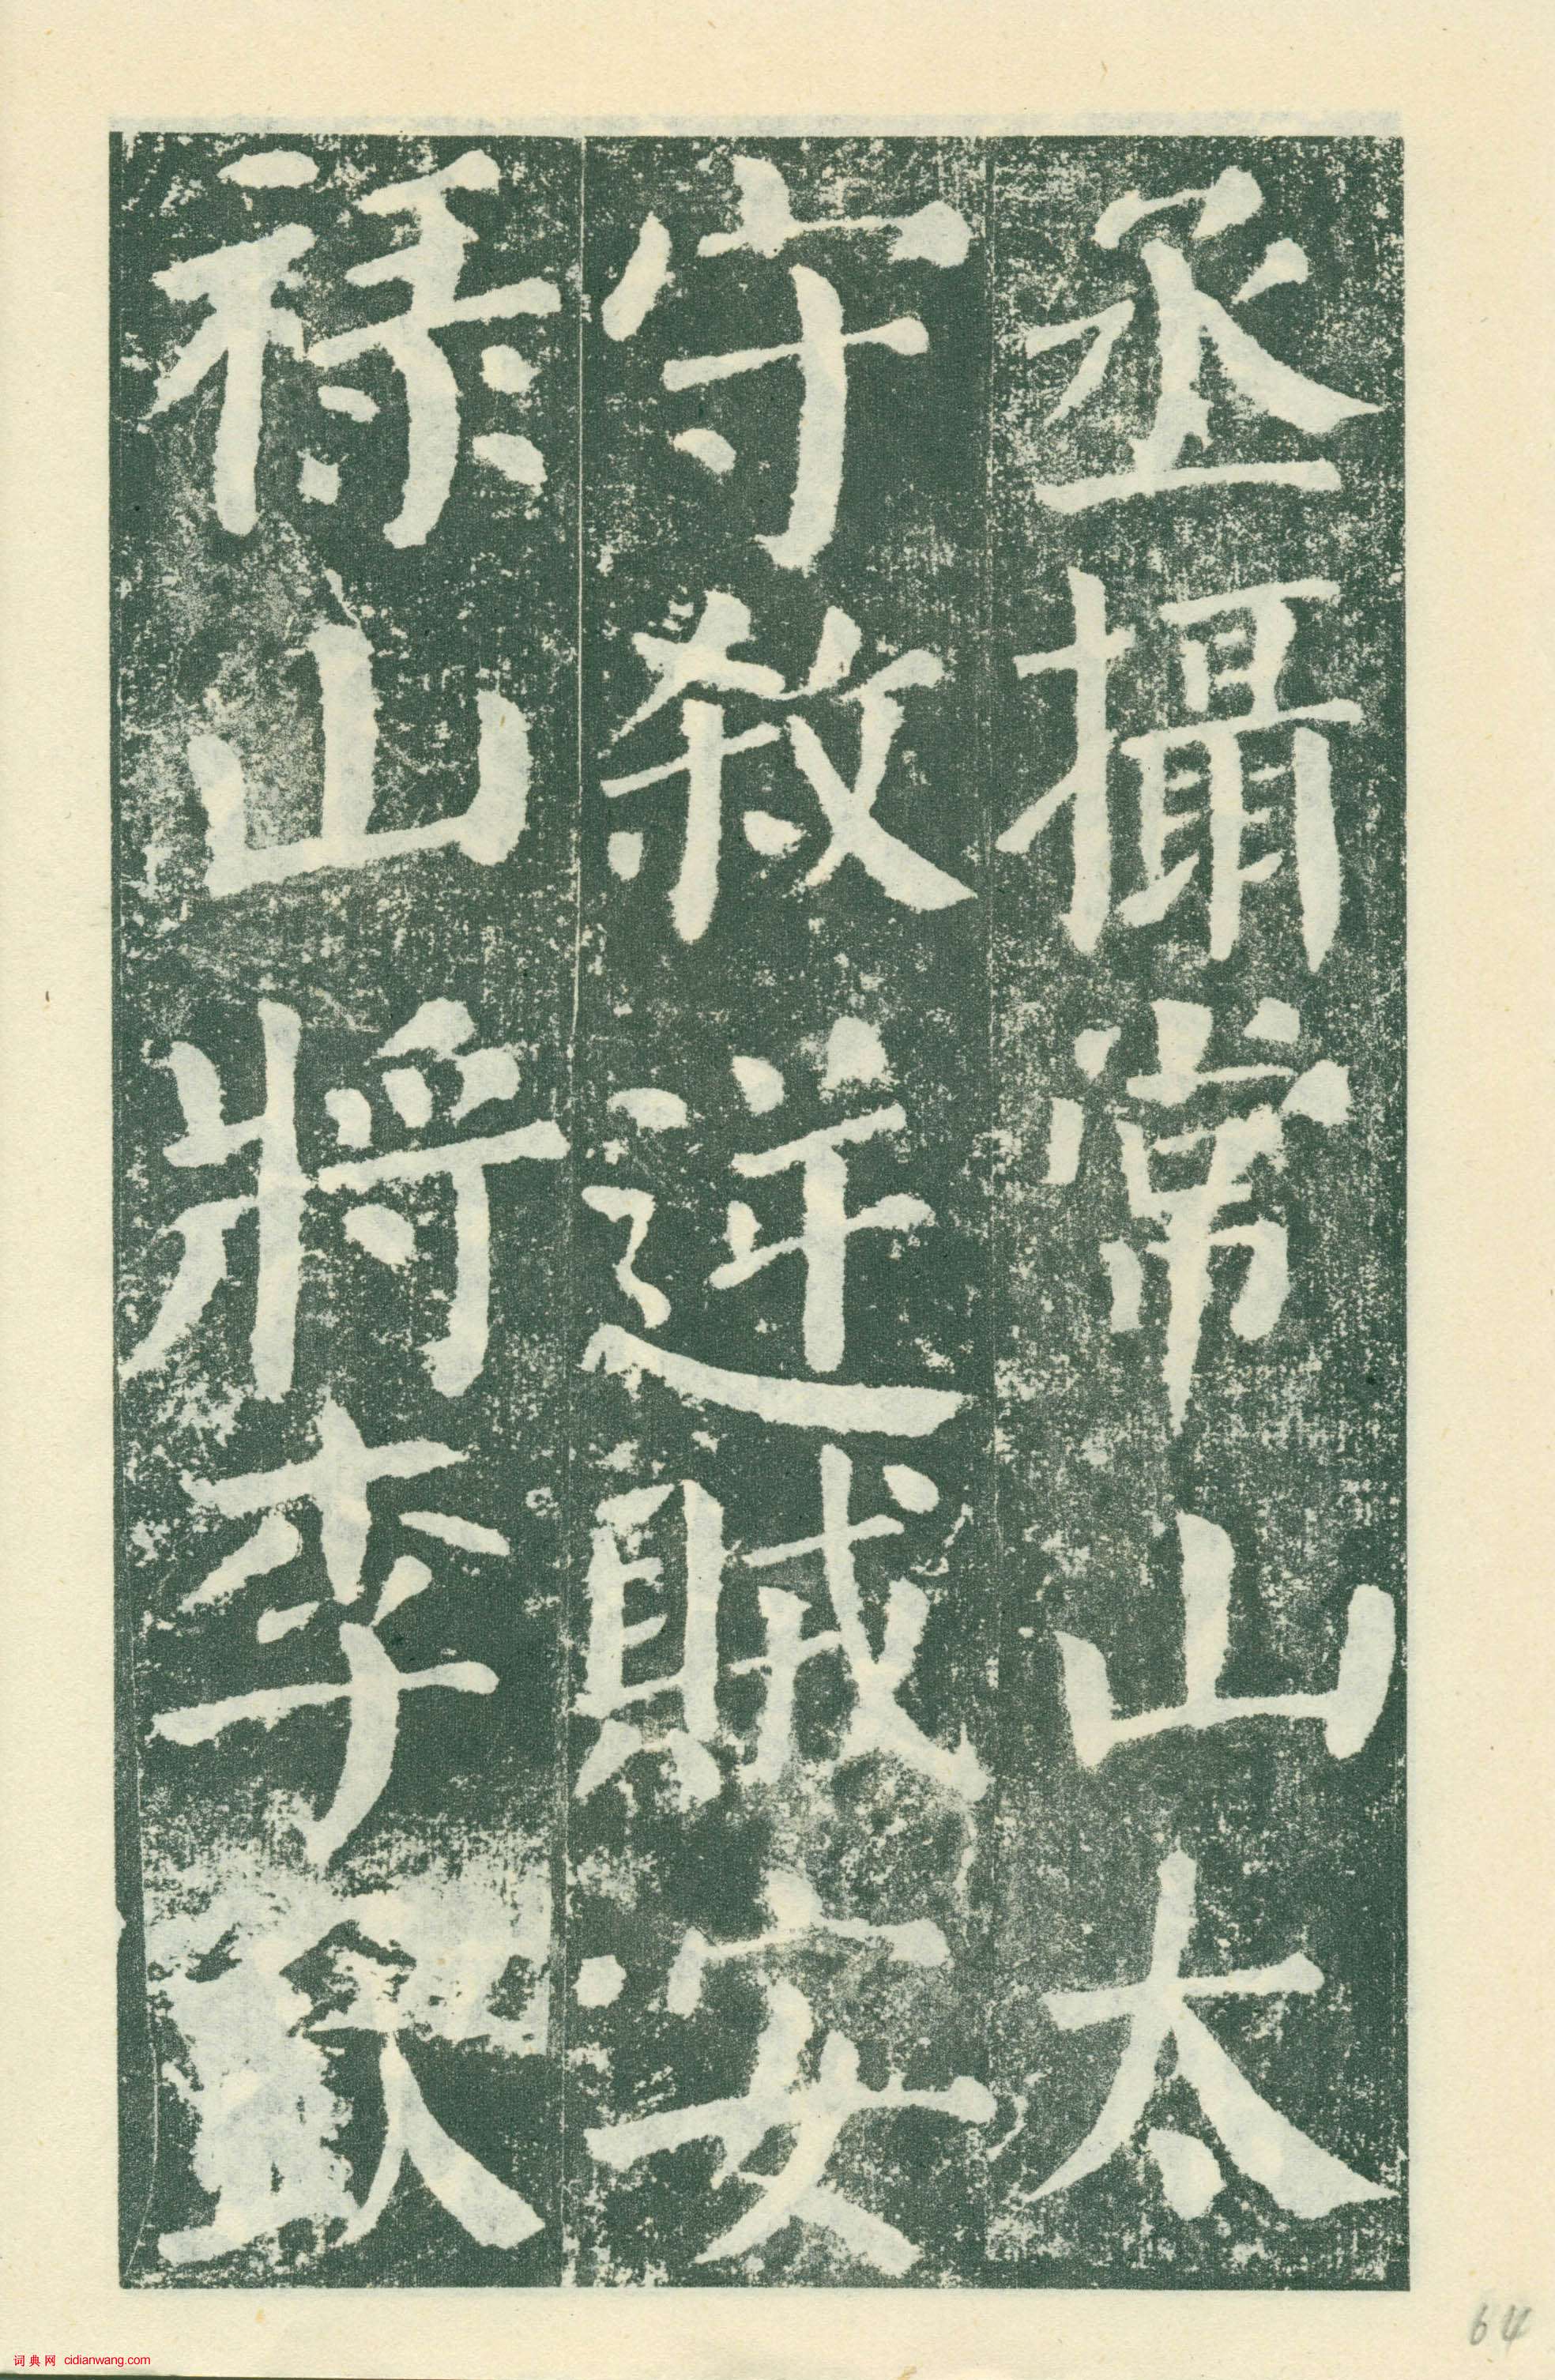 丞攝常山太
守殺逆賊安
祿山將李欽
64
词典网 cidianwang.com